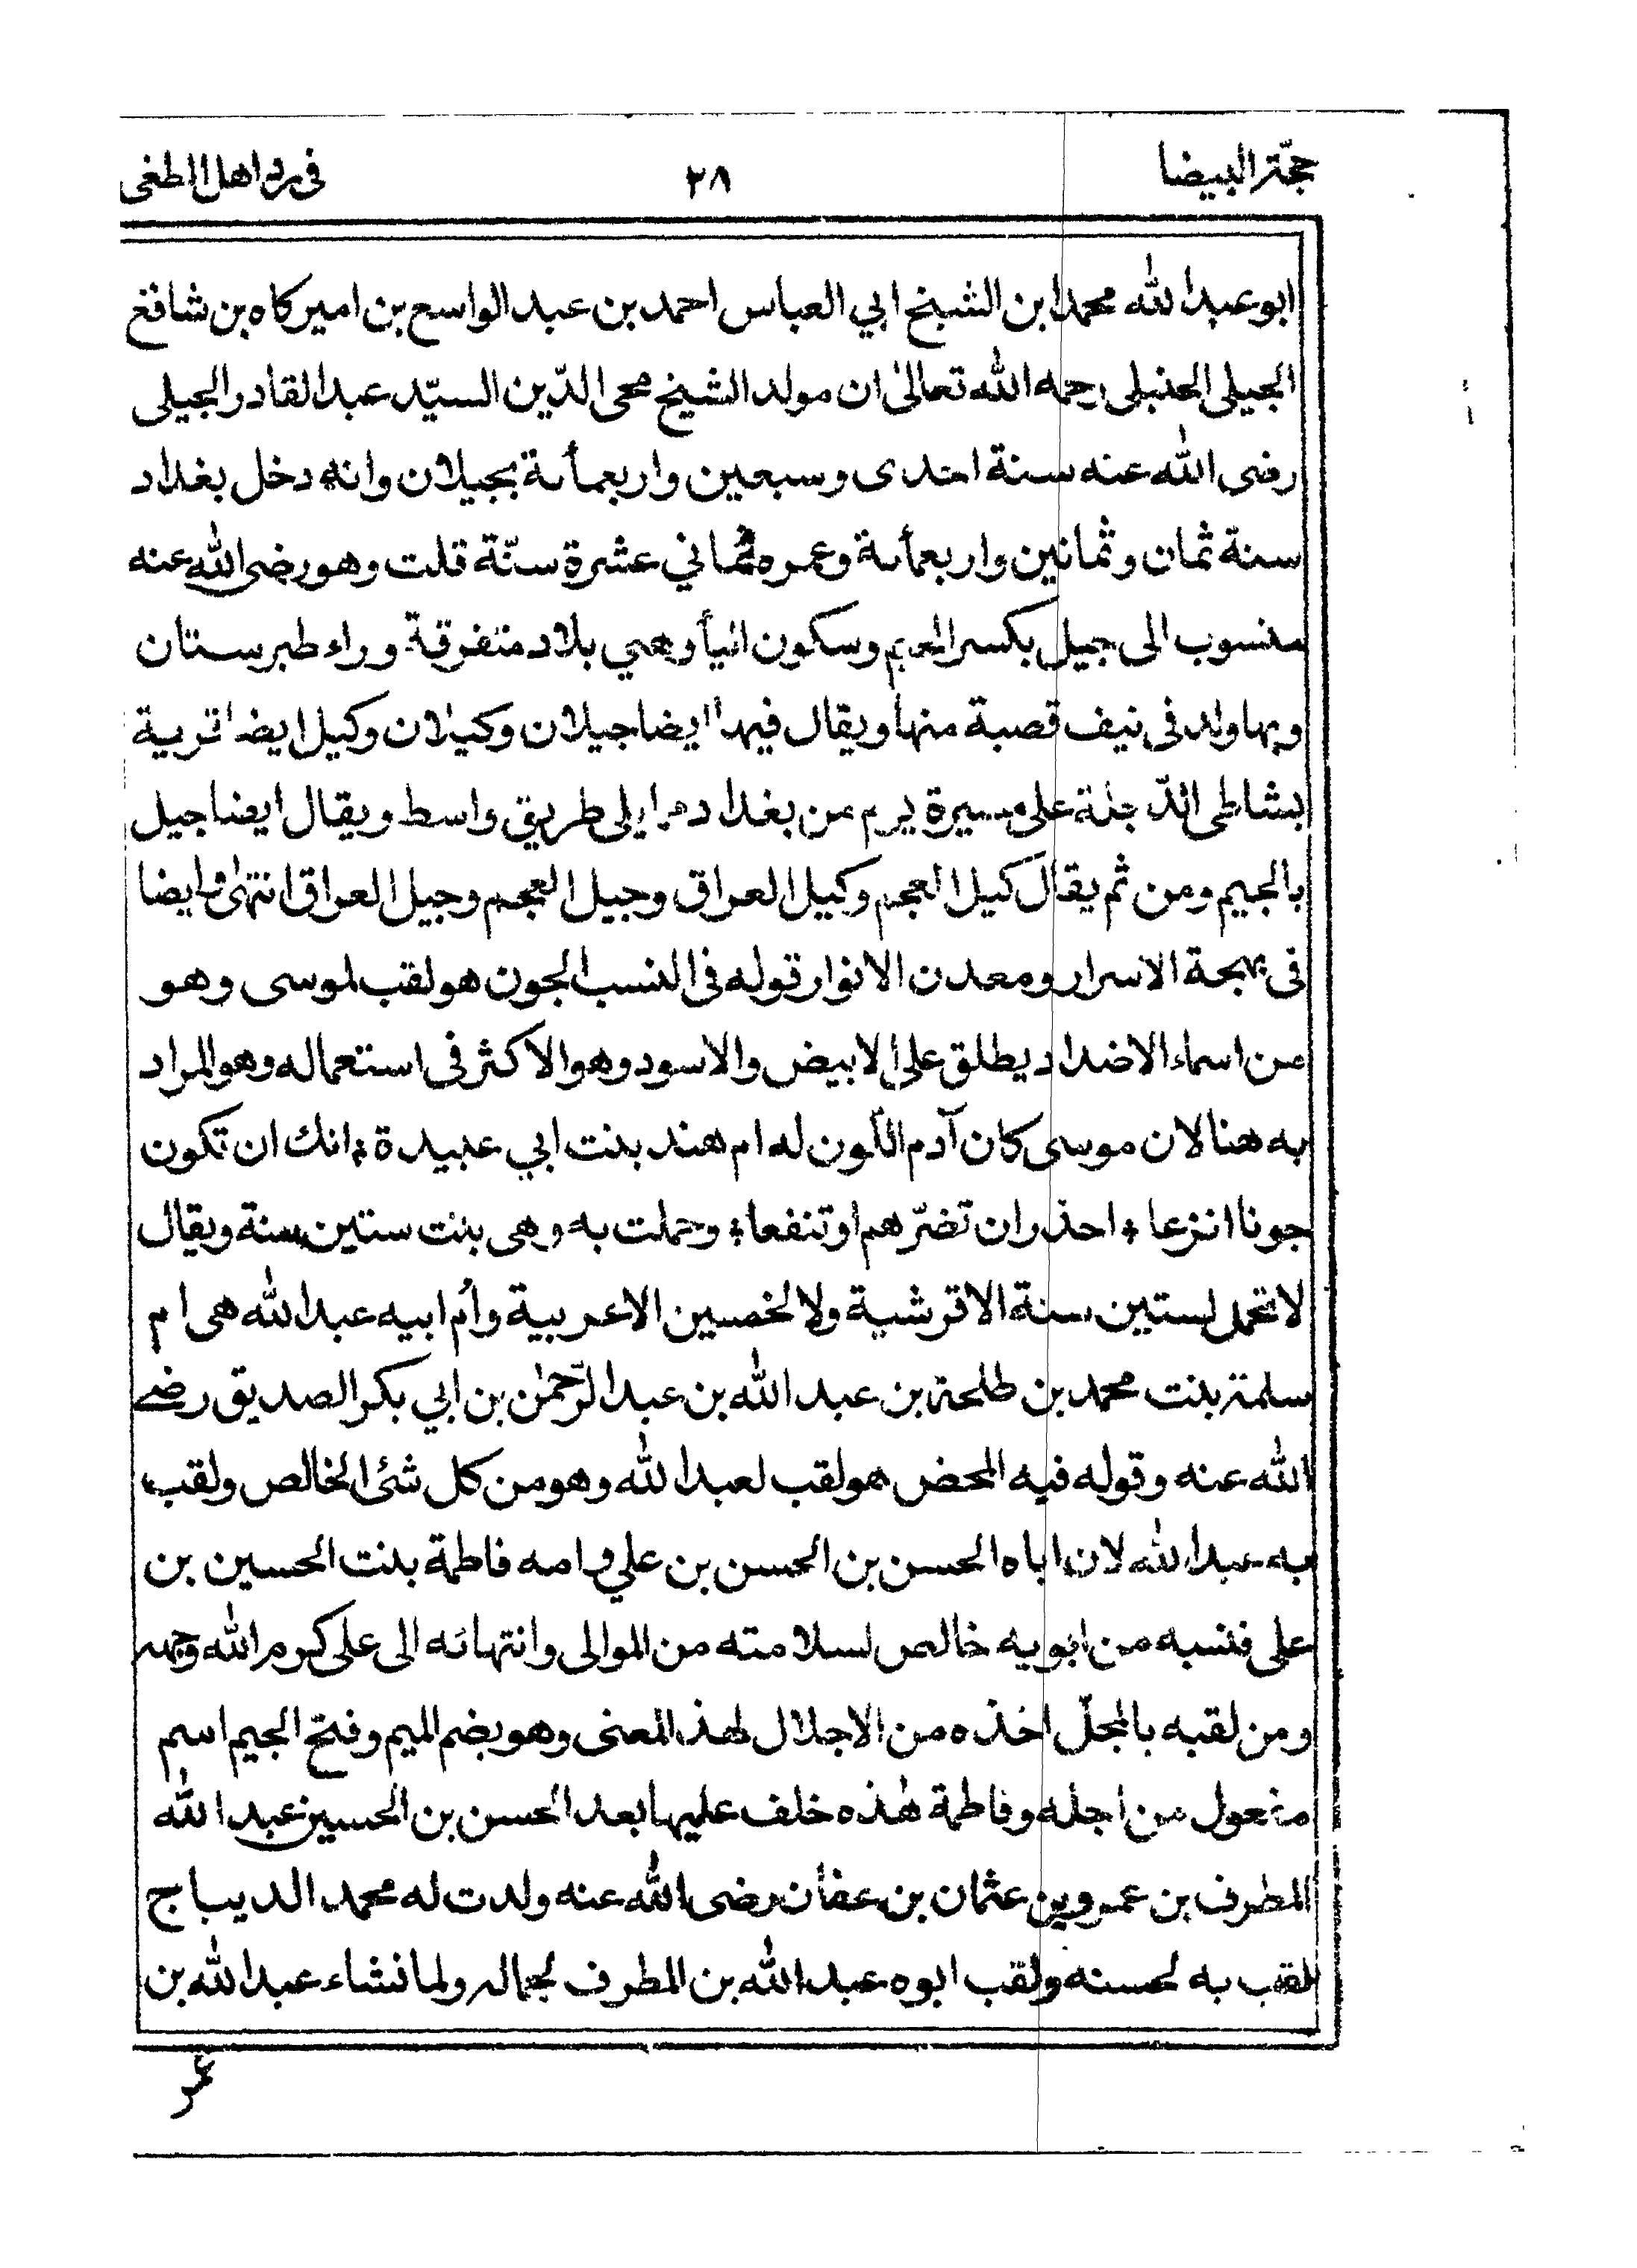 حجّة البيضا ٣٨ فى رد اهل الطغى
ابوعبدالله محمدابن الشيخ ابي العباس احمد بن عبد الواسع بن اميركاه بن شافع
الجيلى الحنبلى رحمه الله تعالىٰ ان مولد الشيخ محى الدّين السيّد عبدالقادر الجيلى
رضى الله عنه سنة احدى وسبعين واربعمأئة بجيلان وانه دخل بغداد
سنة ثمان وثمانين واربعمأئة وعمره ثماني عشرة سنّة قلت وهورضى الله عنه
منسوب الى جيل بكسر الجيم وسكون اليأ وهي بلاد متفرقة وراء طبرستان
وبها ولد فى نيف قصبة منها ويقال فيها ايضا جيلان وكيلان وكيل ايضا قرية
بشاطى الدّجلة على مسيرة يوم من بغداد مما يلى طريق واسط ويقال ايضا جيل
بالجيم ومن ثم يقال كيل العجم وكيل العراق وجيل العجم وجيل العراق انتهىٰ وايضا
فى بهجة الاسرار ومعدن الانوار قوله فى النسب الجون هولقب لموسى وهو
من اسماء الاضداد يطلق على الابيض والاسود وهوالاكثر فى استعماله وهوالمراد
به هنا لان موسى كان آدم اللون له ام هند بنت ابي عبيدة ؛ انك ان تكون
جونا انزعا ؛ احذر ان تضرّهم او تنفعا ؛ وحملت به وهى بنت ستين سنة ويقال
لا تحمل لستين سنة الا قرشية ولا لخمسين الا عربية وأم ابيه عبدالله هى ام
سلمة بنت محمد بن طلحة بن عبد الله بن عبدالرّحمٰن بن ابي بكر الصديق رضى
الله عنه وقوله فيه المحض هولقب لعبدالله وهومن كل شئ الخالص ولقب
به عبدالله لان اباه الحسن بن الحسن بن علي وامه فاطمة بنت الحسين بن
على فنسبه من ابويه خالص لسلامته من الموالى وانتهائه الى على كرم الله وجهه
ومن لقبه بالمجلّ اخذه من الاجلال لهذ المعنى وهوبضم الميم وفتح الجيم اسم
مفعول من اجله وفاطمة هٰذه خلف عليها بعد الحسن بن الحسين عبد الله
المطرف بن عمروبن عثمان بن عفان رضى الله عنه ولدت له محمد الديباج
لقب به لحسنه ولقب ابوه عبدالله بن المطرف لجماله ولما نشاء عبدالله بن
عمر